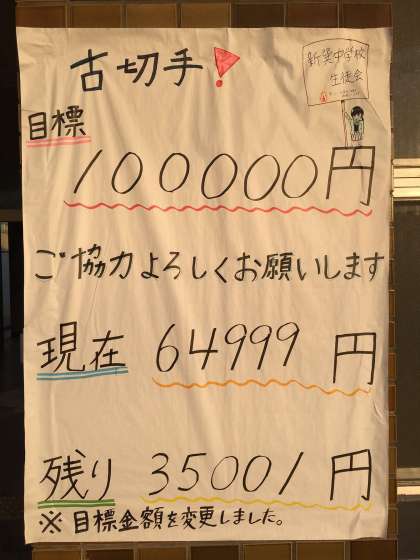 古切手!
新巽中学校
生徒会
目標
100000円
ご協力よろしくお願いします
現在 64999円
残り 35001円
※目標金額を変更しました。